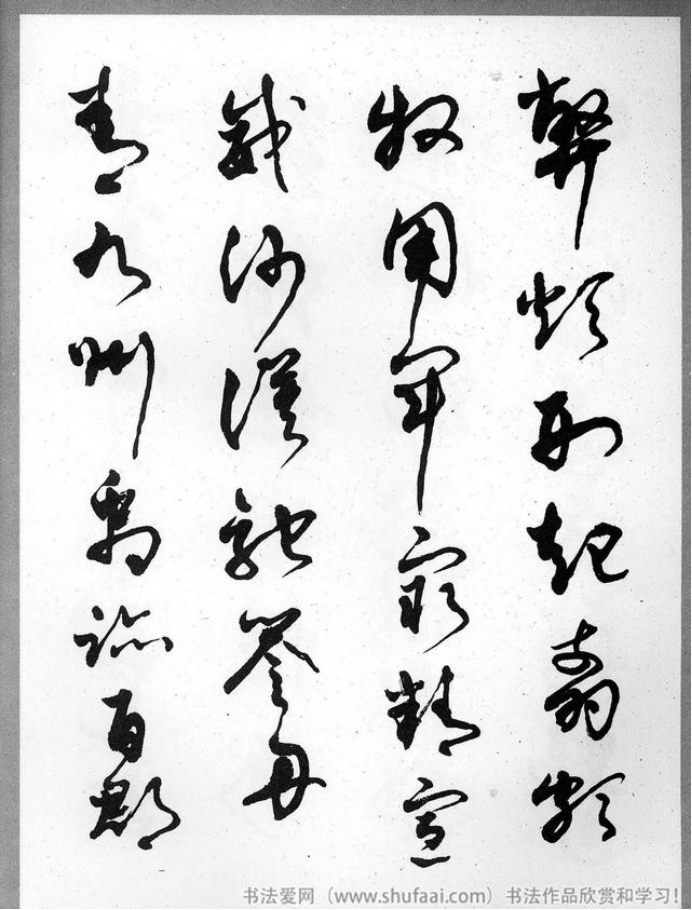 弊煩刑起翦頗
牧用軍最精宣
威沙漠馳譽丹
青九州禹跡百郡
书法爱网（www.shufaai.com）书法作品欣赏和学习！